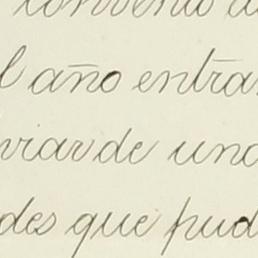 convenio d
l año entra
viar de una
des que pud